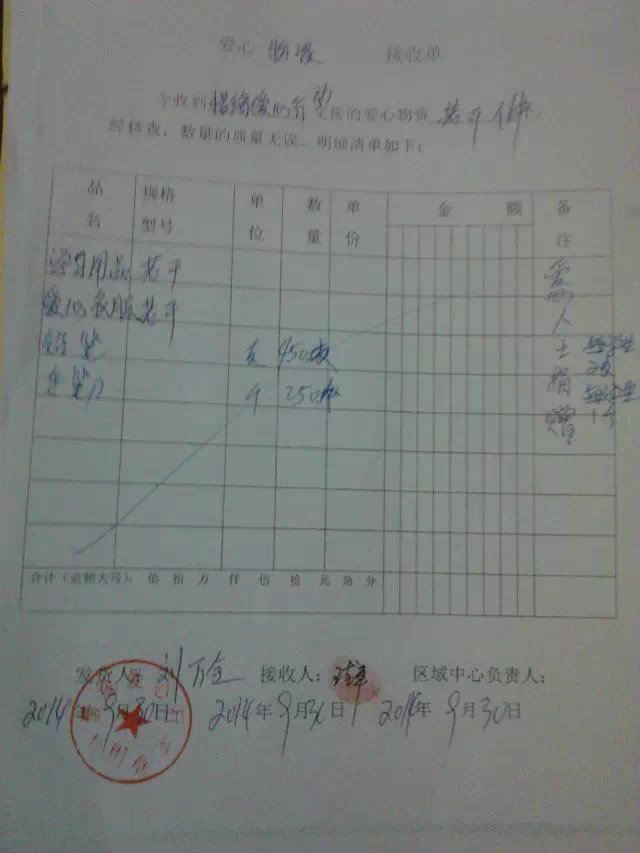 爱心 物资 接收单
今收到 爱心 发的爱心物资 若干件.
经核查,数量的质量无误。明细清单如下:
品名 规格型号 单位 数量 单价 金额 备注
学习用品 若干
爱心衣服 若干
支 450支
个 250个
爱心人士捐赠
每学生2支
每学生1个
合计(金额大写): 佰 拾 万 仟 佰 拾 元 角 分
发货人: 刘万金 接收人: 区域中心负责人:
2014年9月30日 2014年9月30日 2014年9月30日